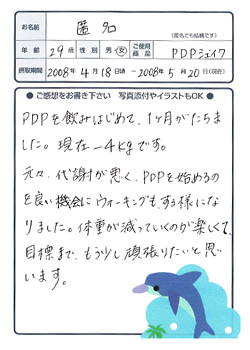 お名前 匿名 (匿名でも結構です)
年齢 29歳 性別 男・女 ご使用商品 PDPシェイク
摂取期間 2008年4月18日頃 ~ 2008年5月20日(現在)
● ご感想をお書き下さい 写真添付やイラストもOK ●
PDPを飲みはじめて、1ヶ月がたちま
した。現在−4kgです。
元々、代謝が悪く、PDPを始めるの
を良い機会にウォーキングも、する様にな
りました。体重が減っていくのが楽しくて、
目標まで、もう少し頑張りたいと思
います。